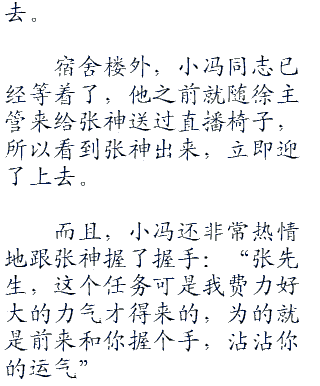 去。
宿舍楼外，小冯同志已
经等着了，他之前就随徐主
管来给张神送过直播椅子，
所以看到张神出来，立即迎
了上去。
而且，小冯还非常热情
地跟张神握了握手：“张先
生，这个任务可是我费力好
大的力气才得来的，为的就
是前来和你握个手，沾沾你
的运气”